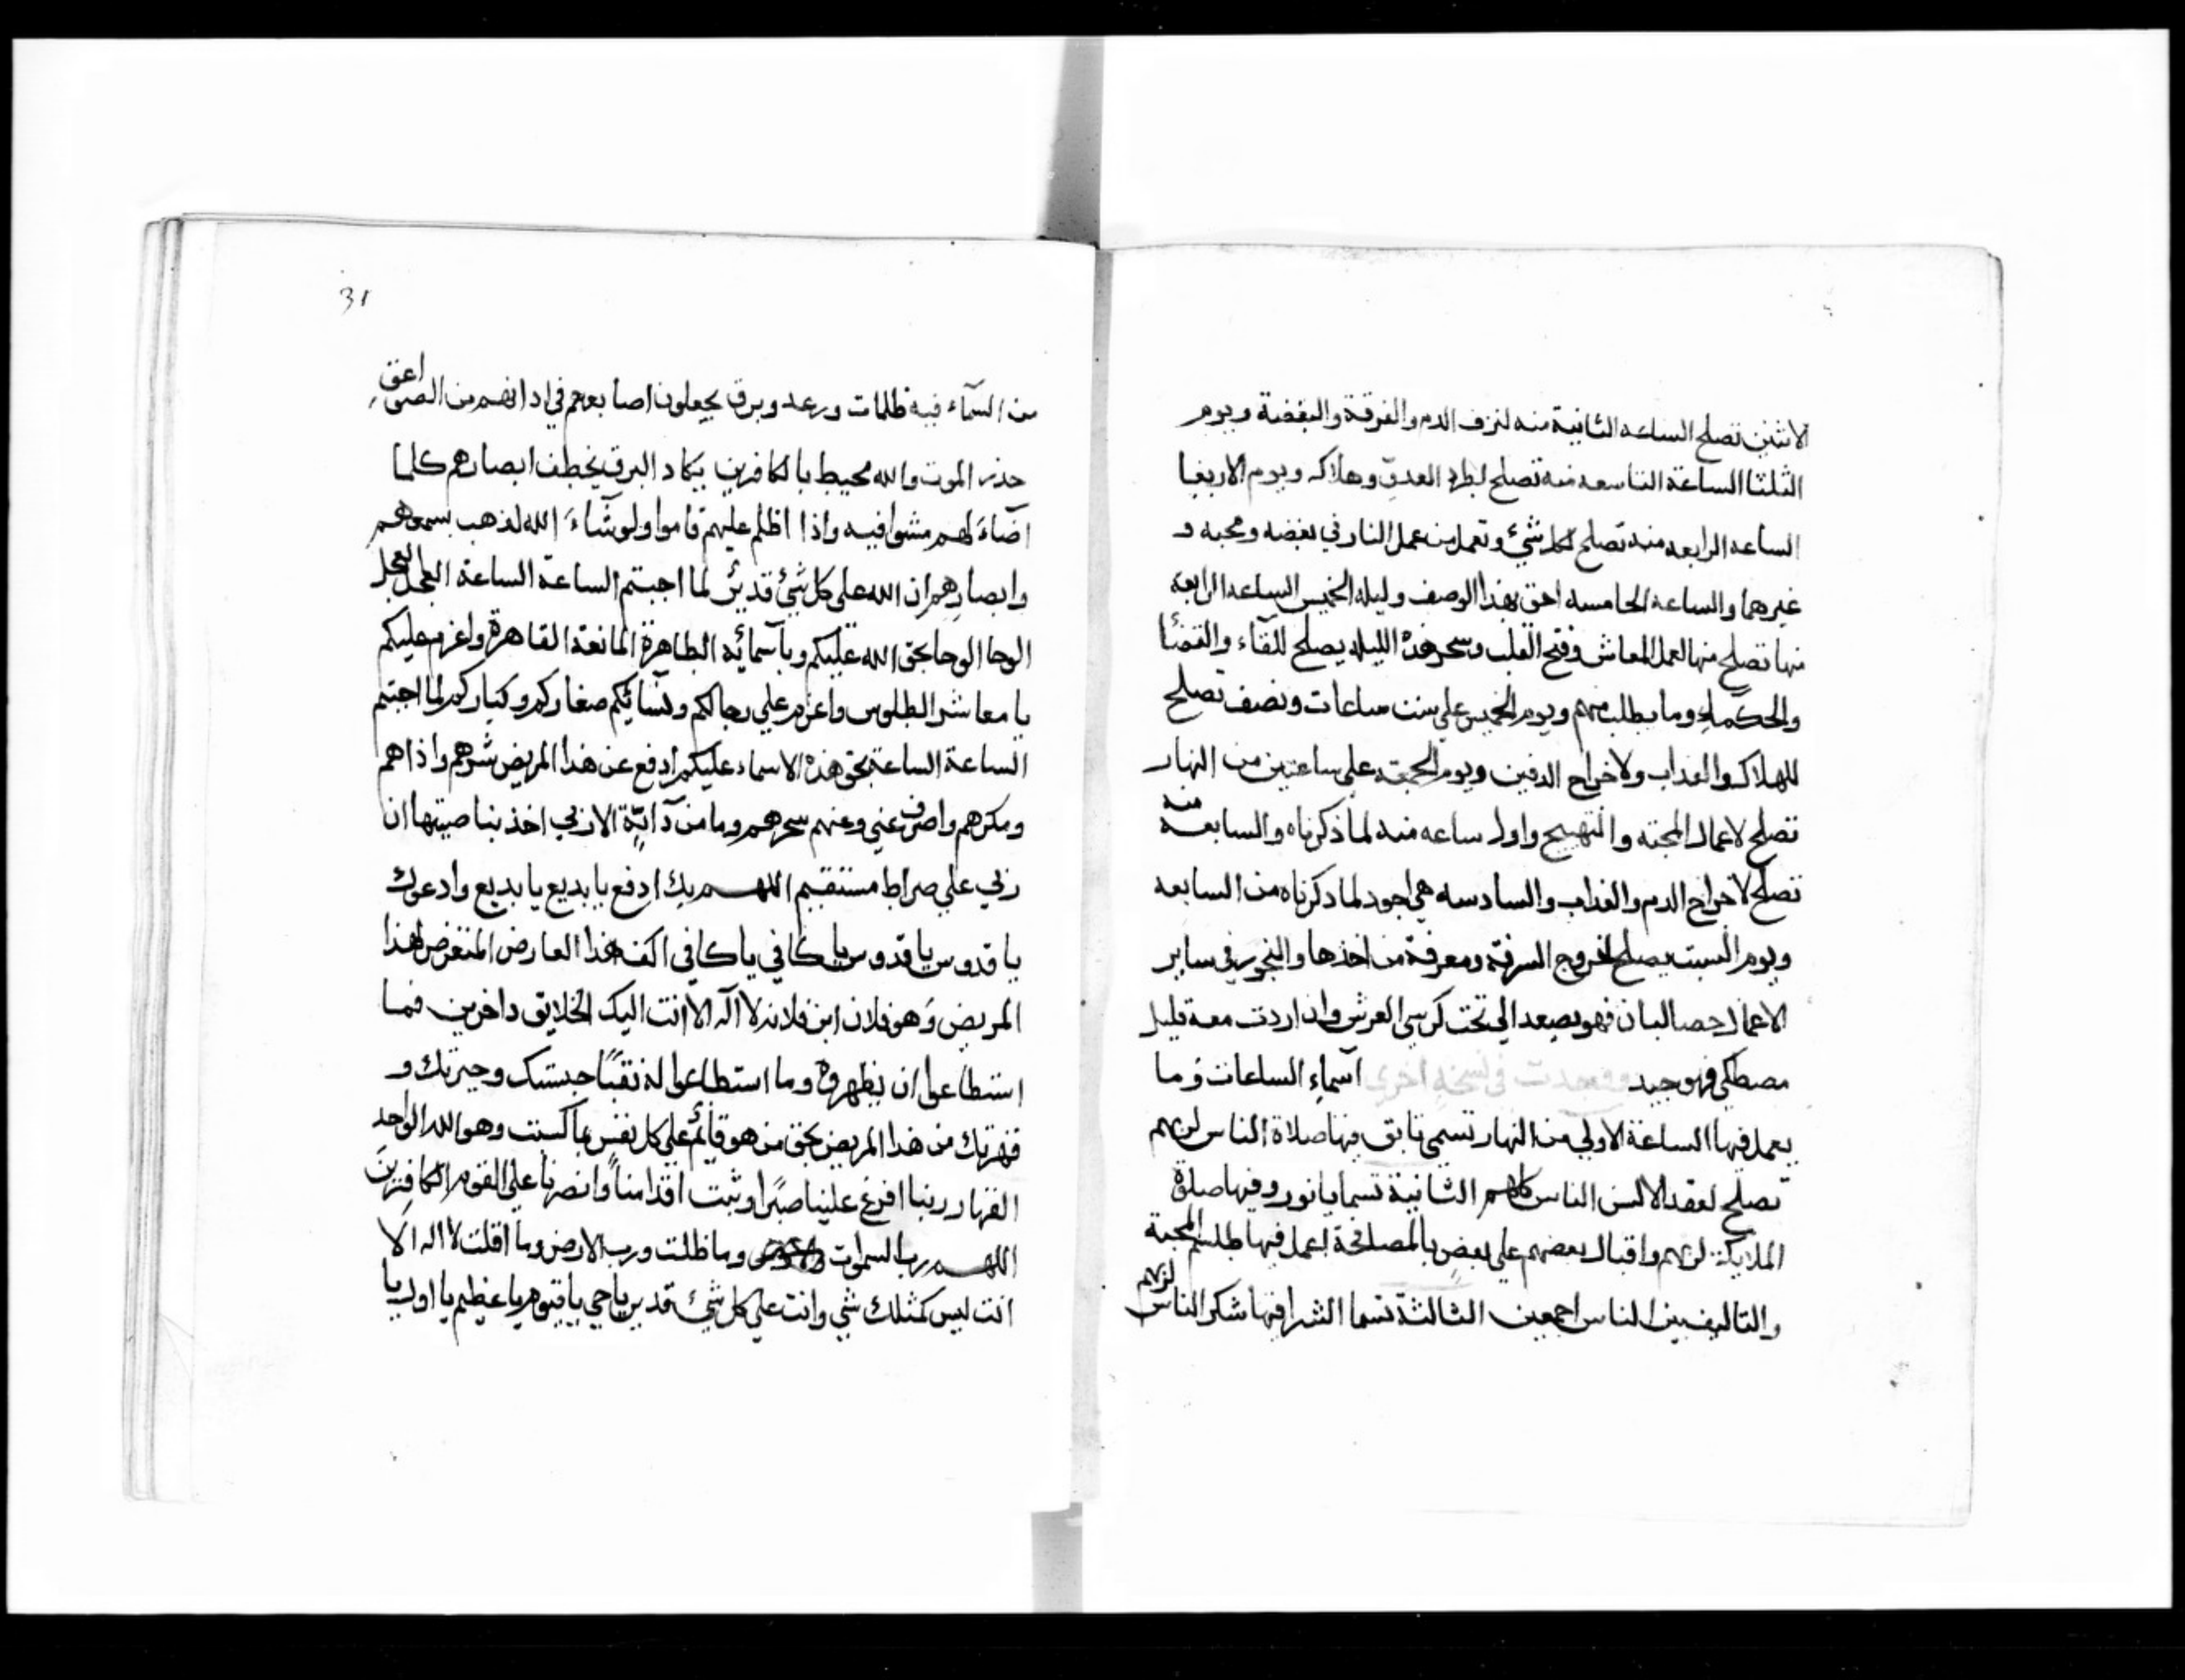 الاثنين تصلح الساعه الثانية منه لنزف الدم والفرقة والبغضة ويوم
الثلثا الساعة التاسعه منه تصلح لطرد العدو وهلاكه ويوم الاربعا
الساعه الرابعه منه تصلح لكل شيء وتعمل من عمل النار في بغضه ومحبه و
غيرهما والساعة الخامسه احق بهذا الوصف وليله الخميس الساعه الرابعه
منها تصلح منها لعمل المعاش وفتح القلب وسحر هذه الليله يصلح للقاء والقضا
والحكما وما يطلب منهم ويوم الخميس على ست ساعات ونصف تصلح
للهلاك والعداب ولاخراج الدفين ويوم الجمعة على ساعتين من النهار
تصلح لاعمال المحبه والتهييج واول ساعه منه لما ذكرناه والسابعة منه
تصلح لاخراج الدم والعداب والسادسه هي اجود لما دكرناه من السابعه
ويوم السبت يصلح لخروج السرقة ومعرفة من اخذها والبخور في ساير
الاعمال حصالبان فهو يصعد الى تحت كرسي العرش وان اردت معه قليل
مصطكي فهو جيد ووجدت في نسخة اخرى اسماء الساعات وما
يعمل فيها الساعة الاولي من النهار تسمي تابق فيها صلاة الناس لربهم
تصلح لعقد الالسن الناس كلهم الثانية تسما يانور وفيها صلوة
الملايكة لربهم واقبال بعضهم علي بعض بالمصلحة اعمل فيها طلسم المحبة
والتاليف بين الناس اجمعين الثالثة تسما الشرا فيها شكر الناس لربهم
31
من السمآء فيه ظلمات ورعد وبرق يجعلون اصابعهم في ادانهم من الصواعق
حذر الموت والله محيط بالكافرين يكاد البرق يخطف ابصارهم كلما
اضآء لهم مشوا فيه واذا اظلم عليهم قاموا ولو شآء الله لذهب بسمعهم
وابصارهم ان الله على كل شيء قدير لما اجبتم الساعة الساعة العجل العجل
الوحا الوحا بحق الله عليكم وبآسمائه الطاهرة المانعة القاهرة واعزم عليكم
يا معاشر الطلوس واعزم علي رجالكم ونسائكم صغاركم وكباركم لما اجبتم
الساعة الساعة بحق هذه الاسماء عليكم ادفع عن هذا المريض شرهم واذاهم
ومكرهم واصرف عني وعنهم سحرهم وما من دآبة الا ربي اخذ بناصيتها ان
ربي علي صراط مستقيم اللهم بك ادفع يا بديع يا بديع وادعوك
يا قدوس يا قدوس يا كافي يا كافي اكف هذا العارض المتعرض لهذا
المريض وهو فلان ابن فلانه لا اله الا انت اليك الخلايق داخرين فما
استطاعوا ان يظهروه وما استطاعوا له نقبا حبستك وجبرتك و
قهرتك من هذا المريض بحق من هو قائم علي كل نفس بما كسبت وهو الله الواحد
القهار ربنا افرغ علينا صبرا وثبت اقدامنا وانصرنا علي القوم الكافرين
اللهم رب السموات وما ظلت ورب الارض وما اقلت لا اله الا
انت ليس كمثلك شي وانت علي كل شيء قدير يا حي يا قيوم يا عظيم يا اول يا